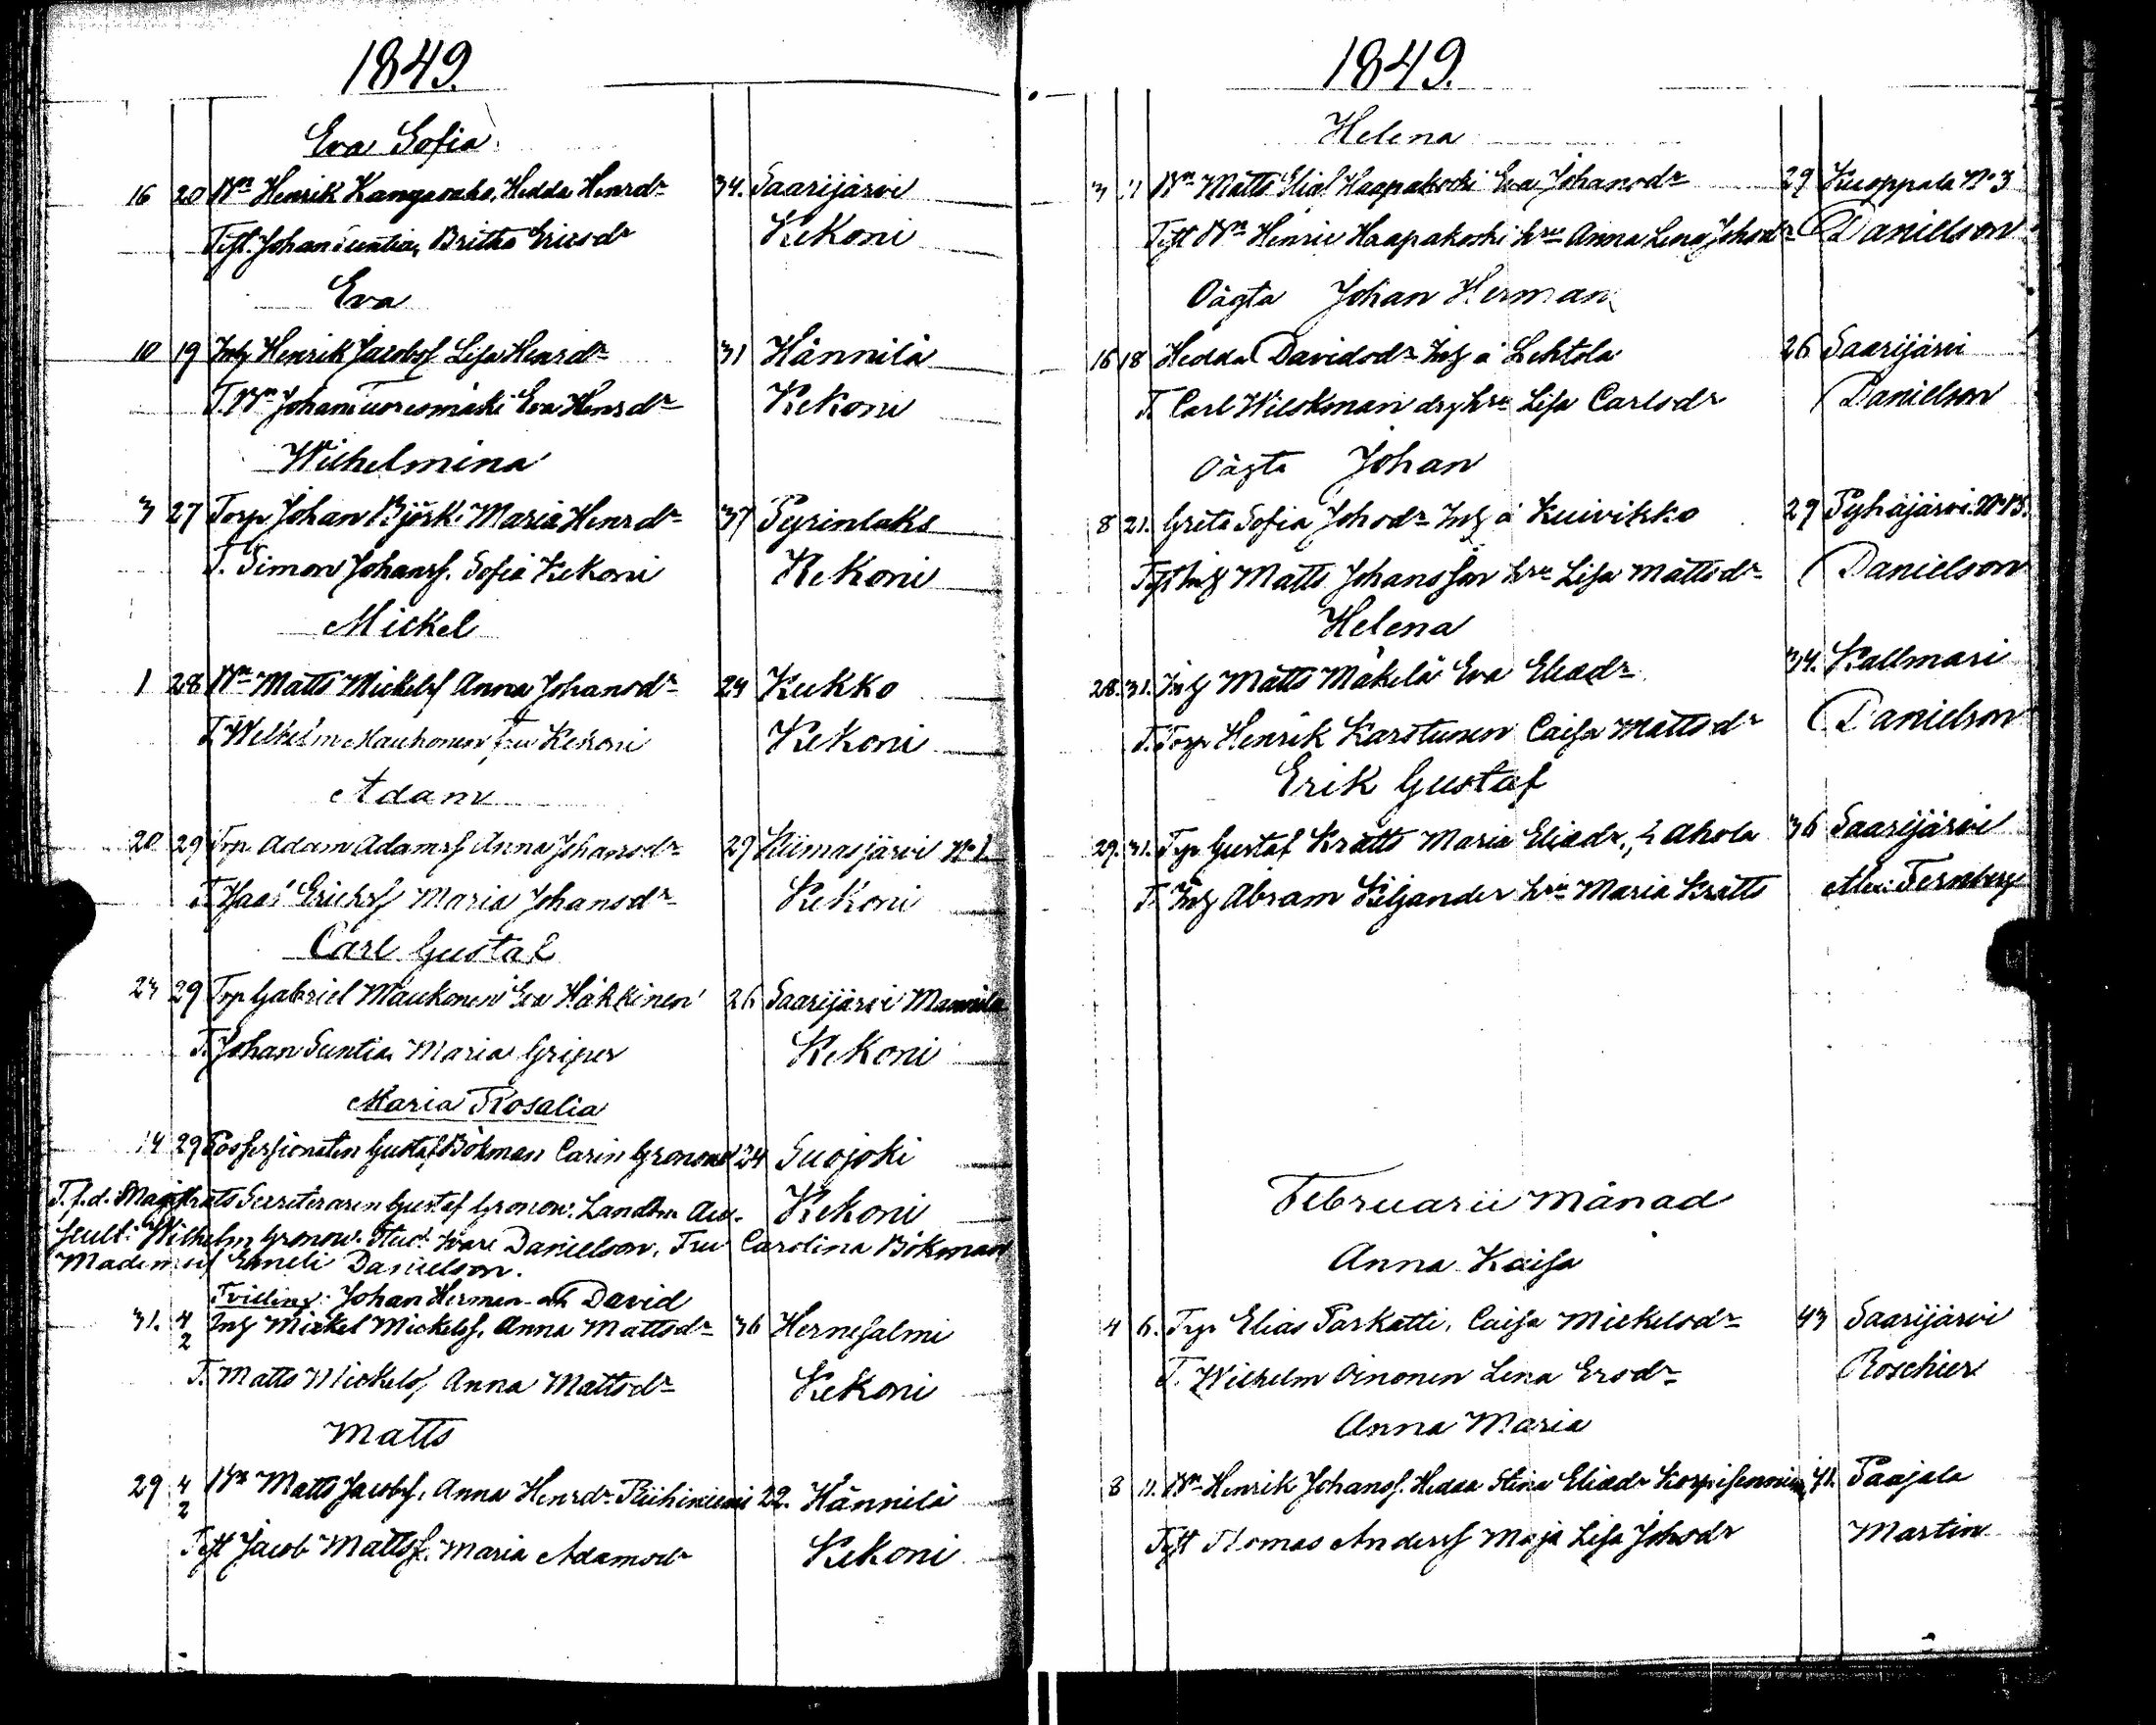 1849.
Eva Sofia
16 20 Bn Henrik Kangasaho, Hedda Henrdr 34. Saarijärvi
Test. Johan Suntia, Britha Ericsdr Kekoni
Eva
10 19 Inh Henrik Jacobsf Lisa Henrdr 31 Hännilä
T. Bn Johan Tuoresmäki Eva Henrdr Kekoni
Wilhelmina
3 27 Torp Johan Björk. Maria Henrdr 37 Pyrinlaks
T. Simon Johansf. Sofia Kekoni Kekoni
Mickel
1 28 Bn Matts Mickelsf Anna Johansdr 24 Kukko
T. Wilhelm Mauhonen, Fru Kekoni Kekoni
Adam
20 29 Torp Adam Adamsf Anna Johansdr 29 Kiimasjärvi No 1.
T. Isac Ericksf Maria Johansdr Kekoni
Carl Gustaf
23 29 Torp Gabriel Maukonen Eva Häkkinen 26 Saarijärvi Mannila
T. Johan Suntia Maria Griper Kekoni
Maria Rosalia
14 29 Possessionaten Gustaf Bökman Carin Gronow 24 Suojoki
T. f.d. Magistrats Secreteraren Gustaf Gronow. Landtm. Aus- Kekoni
cult: Wilhelm Gronow. Stud. Ivare Danielson, Fru Carolina Bökman
Mademois Emeli Danielson.
Tvilling: Johan Herman och David
31. 4/2 Inh Mickel Mickelsf. Anna Mattsdr 36 Hernesalmi
T. Matts Mickelsf, Anna Mattsdr Kekoni
Matts
29 4/2 Bn Matts Jacobsf. Anna Henrdr Riihiniemi 22. Hännilä
Test Jacob Mattsf. Maria Adamsdr Kekoni
1849.
Helena
3 11 Bn Matts Eliaf Haapakoski Eva Johansdr 29 Kuoppala No 3
Test Bn Henric Haapakoski hru Anna Lena Johsdr Danielson
Oägta Johan Herman
16 18 Hedda Davidsdr Inh å Lehtola 26 Saarijärvi
T. Carl Wilskman drg hru Lisa Carlsdr Danielson
Oägta Johan
8 21. Greta Sofia Johsdr Inh å Kuivikko 29 Pyhäjärvi No 13.
Test Inh Matts Johansson hru Lisa Mattsdr Danielson
Helena
28. 31. Inh Matts Mäkelä Eva Eliadr 34. Kallmari
T. Torp Henrik Karstunen Caisa Mattsdr Danielson
Erik Gustaf
29. 31. Torp Gustaf Krätts Maria Eliadr, å Ahola 36 Saarijärvi
T. Inh Abram Kiljander hru Maria Krätts Alex: Fernberg
Februarii Månad
Anna Kaisa
4 6. Torp Elias Parkatti, Caisa Mickelsdr 43 Saarijärvi
T. Wilhelm Oinonen Lena Ersdr Roschier
Anna Maria
8 11. Bn Henrik Johansf. Hedda Stina Eliadr 41. Paajala
Test Thomas Andersf Maja Lisa Johsdr Martin